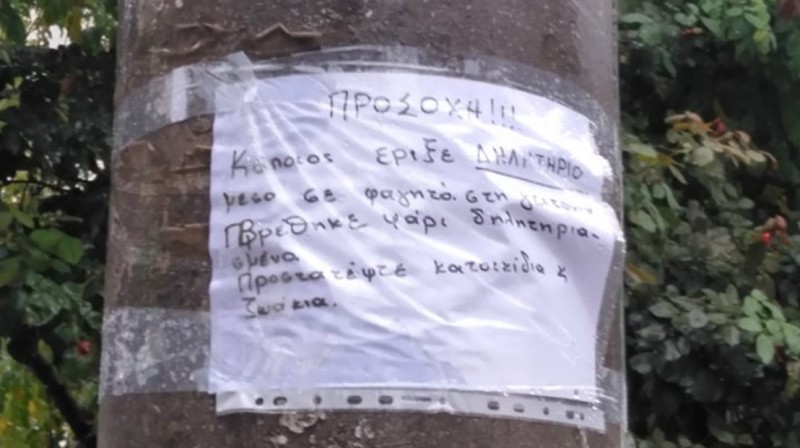 ΠΡΟΣΟΧΗ!!!
Κάποιος έριξε ΔΗΛΗΤΗΡΙΟ
μεσα σε φαγητό. στη γειτονιά
Βρέθηκε ψάρι δηλητηρια-
σμένο
Προστατέψτε κατοικίδια &
ζωάκια.